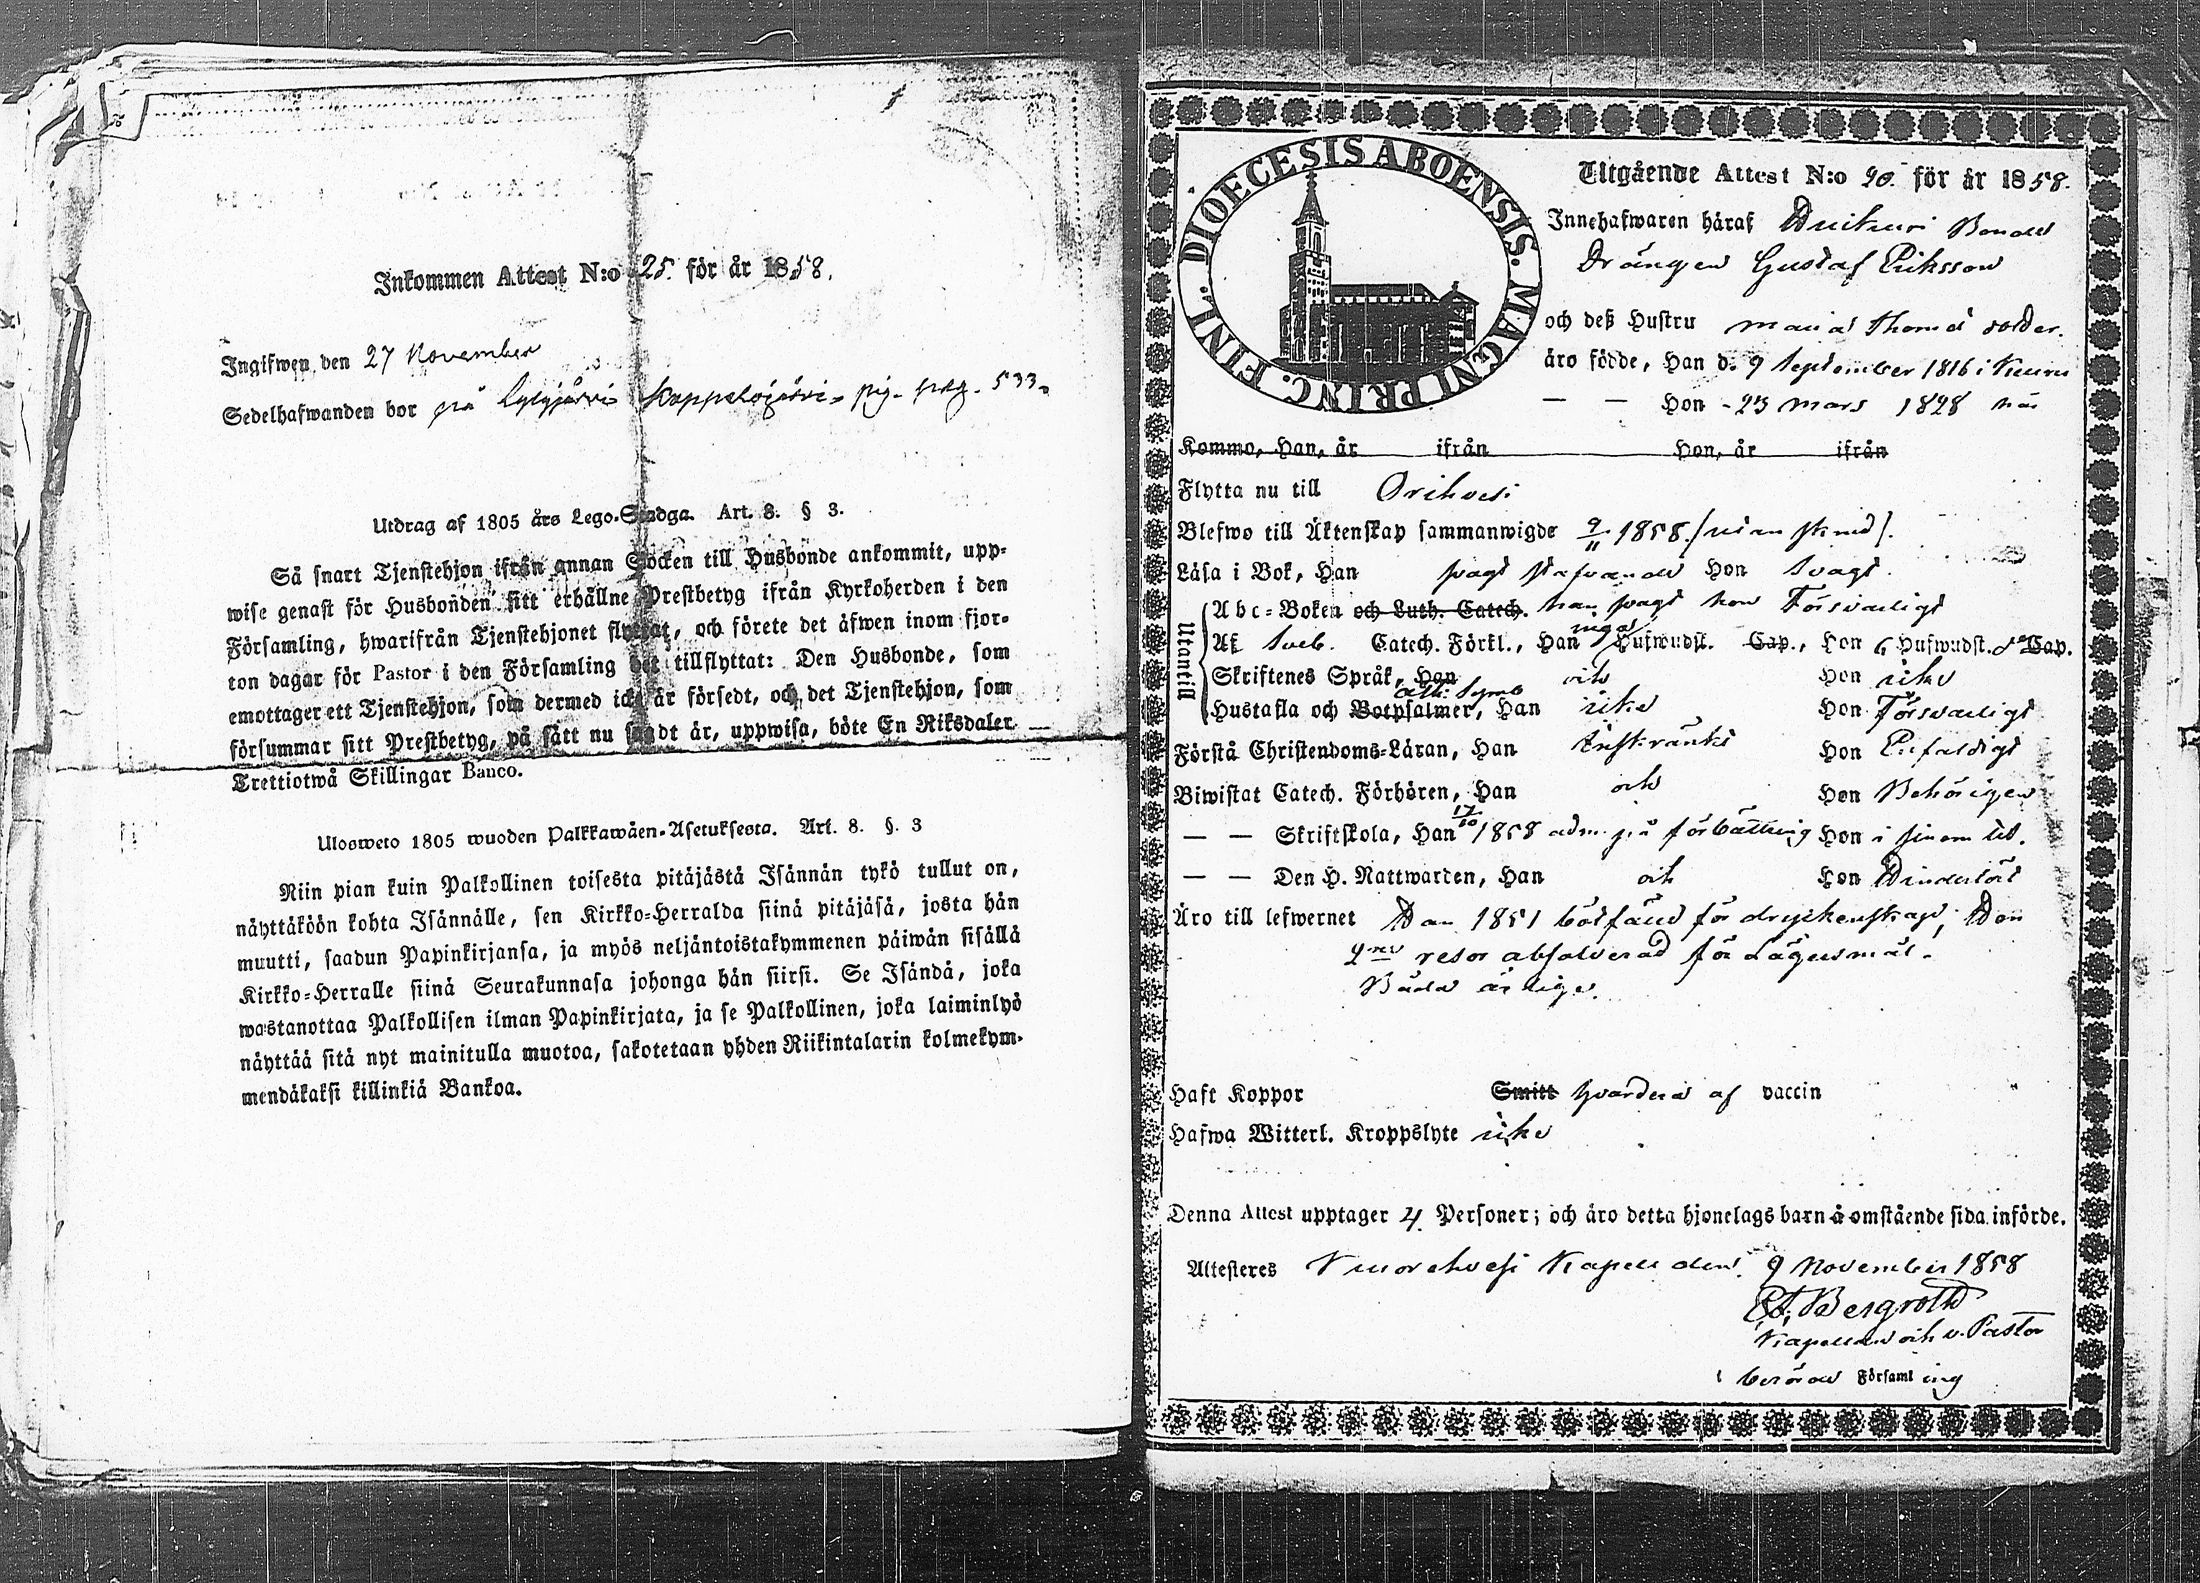 Inkommen Attest N:o 25. för år 1858.
Ingifwen den 27 November
Sedelhafwanden bor på Lylyjärvi pag. 533
Utdrag af 1805 års Lego-Stadga. Art. 8. § 3.
Så snart Tjenstehjon ifrån annan Socken till Husbonde ankommit, upp-
wise genast för Husbonden sitt erhållne Prestbetyg ifrån Kyrkoherden i den
Församling, hwarifrån Tjenstehjonet flyttat, och förete det äfwen inom fjor-
ton dagar för Pastor i den Församling det tillflyttat: Den Husbonde, som
emottager ett Tjenstehjon, som dermed icke är försedt, och det Tjenstehjon, som
försummar sitt Prestbetyg, på sätt nu sagdt är, uppwisa, böte En Riksdaler
Trettiotwå Skillingar Banco.
Ulosweto 1805 wuoden Palkkawäen-Asetuksesta. Art. 8. §. 3
Niin pian kuin Palkollinen toisesta pitäjästä Isännän tykö tullut on,
näyttäköön kohta Isännälle, sen Kirkko-Herralda siinä pitäjäsä, josta hän
muutti, saadun Papinkirjansa, ja myös neljäntoistakymmenen päiwän sisällä
Kirkko-Herralle siinä Seurakunnasa johonga hän siirsi. Se Isändä, joka
wastanottaa Palkollisen ilman Papinkirjata, ja se Palkollinen, joka laiminlyö
näyttää sitä nyt mainitulla muotoa, sakotetaan yhden Riikintalarin kolmekym-
mendäkaksi killinkiä Bankoa.
DIOECESIS ABOENSIS. MAGNI PRINC. FINL.
Utgående Attest N:o 20. för år 1858.
Innehafwaren häraf
Drängen Gustaf Eriksson
och deß Hustru Maria Thomæ dotter.
äro födde, Han d. 9 September 1816 i Kuru
— — Hon - 23 Mars 1828 här
Kommo, Han, år ifrån Hon, år ifrån
Flytta nu till Orihvesi
Blefwo till Äktenskap sammanwigde 9/11 1858.
Läsa i Bok, Han svagt stafvande Hon Svagt.
Utantill
Abc-Boken och Luth. Catech. han svagt hon Försvarligt
Af Sveb. Catech. Förkl., Han inga Hufwudst. Cap., Hon 6 Hufwudst. Cap.
Skriftenes Språk, Han och Hon icke
Ath. Symb
Hustafla och Botpsalmer, Han icke Hon Försvarligt
Förstå Christendoms-Läran, Han Inskränkt Hon Enfaldigt
Biwistat Catech. Förhören, Han och Hon Behörigen
— — Skriftskola, Han 17/10 1858 adm. på förbättring Hon i sinom tid.
— — Den H. Nattwarden, Han och Hon
Äro till lefwernet Han 1851 bötfäld för dryckenskap; Hon
2ne resor absolverad för Lägersmål.
Båda ärlige.
Haft Koppor Smitt hvardera af vaccin
Hafwa Witterl. Kroppslyte icke
Denna Attest upptager 4 Personer; och äro detta hjonelags barn å omstående sida införde.
Attesteres Kuorehvesi Kapell den 9 November 1858
Bergroth
Kapellan och v. Pastor
i berörde Församling